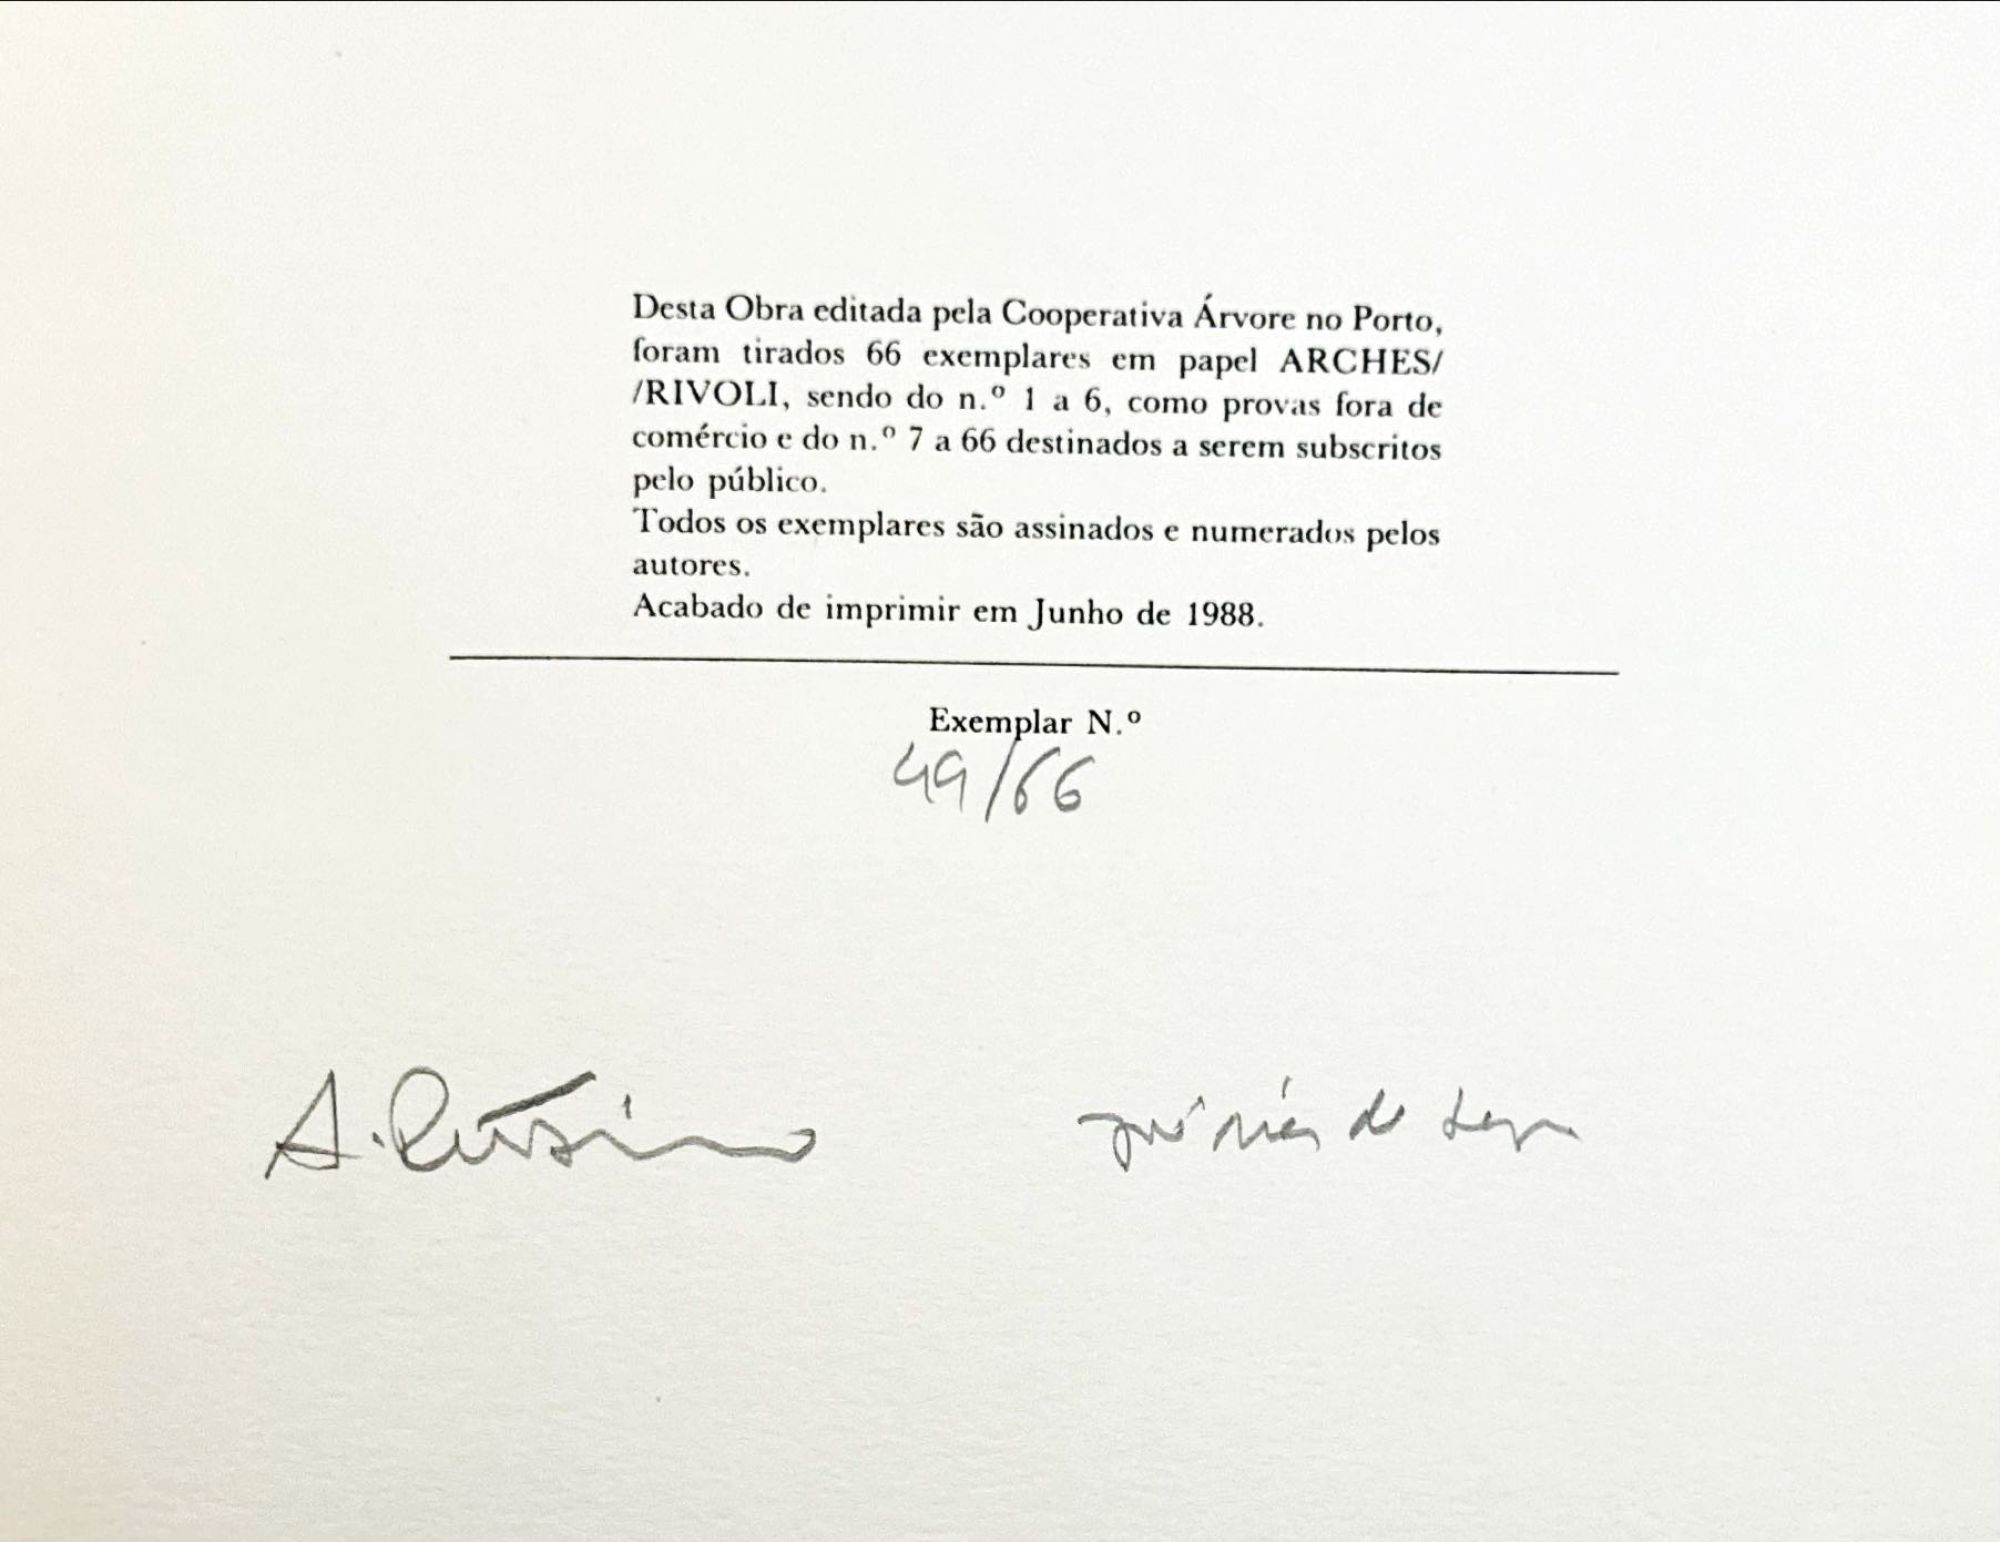 Desta Obra editada pela Cooperativa Árvore no Porto,
foram tirados 66 exemplares em papel ARCHES/
/RIVOLI, sendo do n.º 1 a 6, como provas fora de
comércio e do n.º 7 a 66 destinados a serem subscritos
pelo público.
Todos os exemplares são assinados e numerados pelos
autores.
Acabado de imprimir em Junho de 1988.
Exemplar N.º
49/66
A.
de